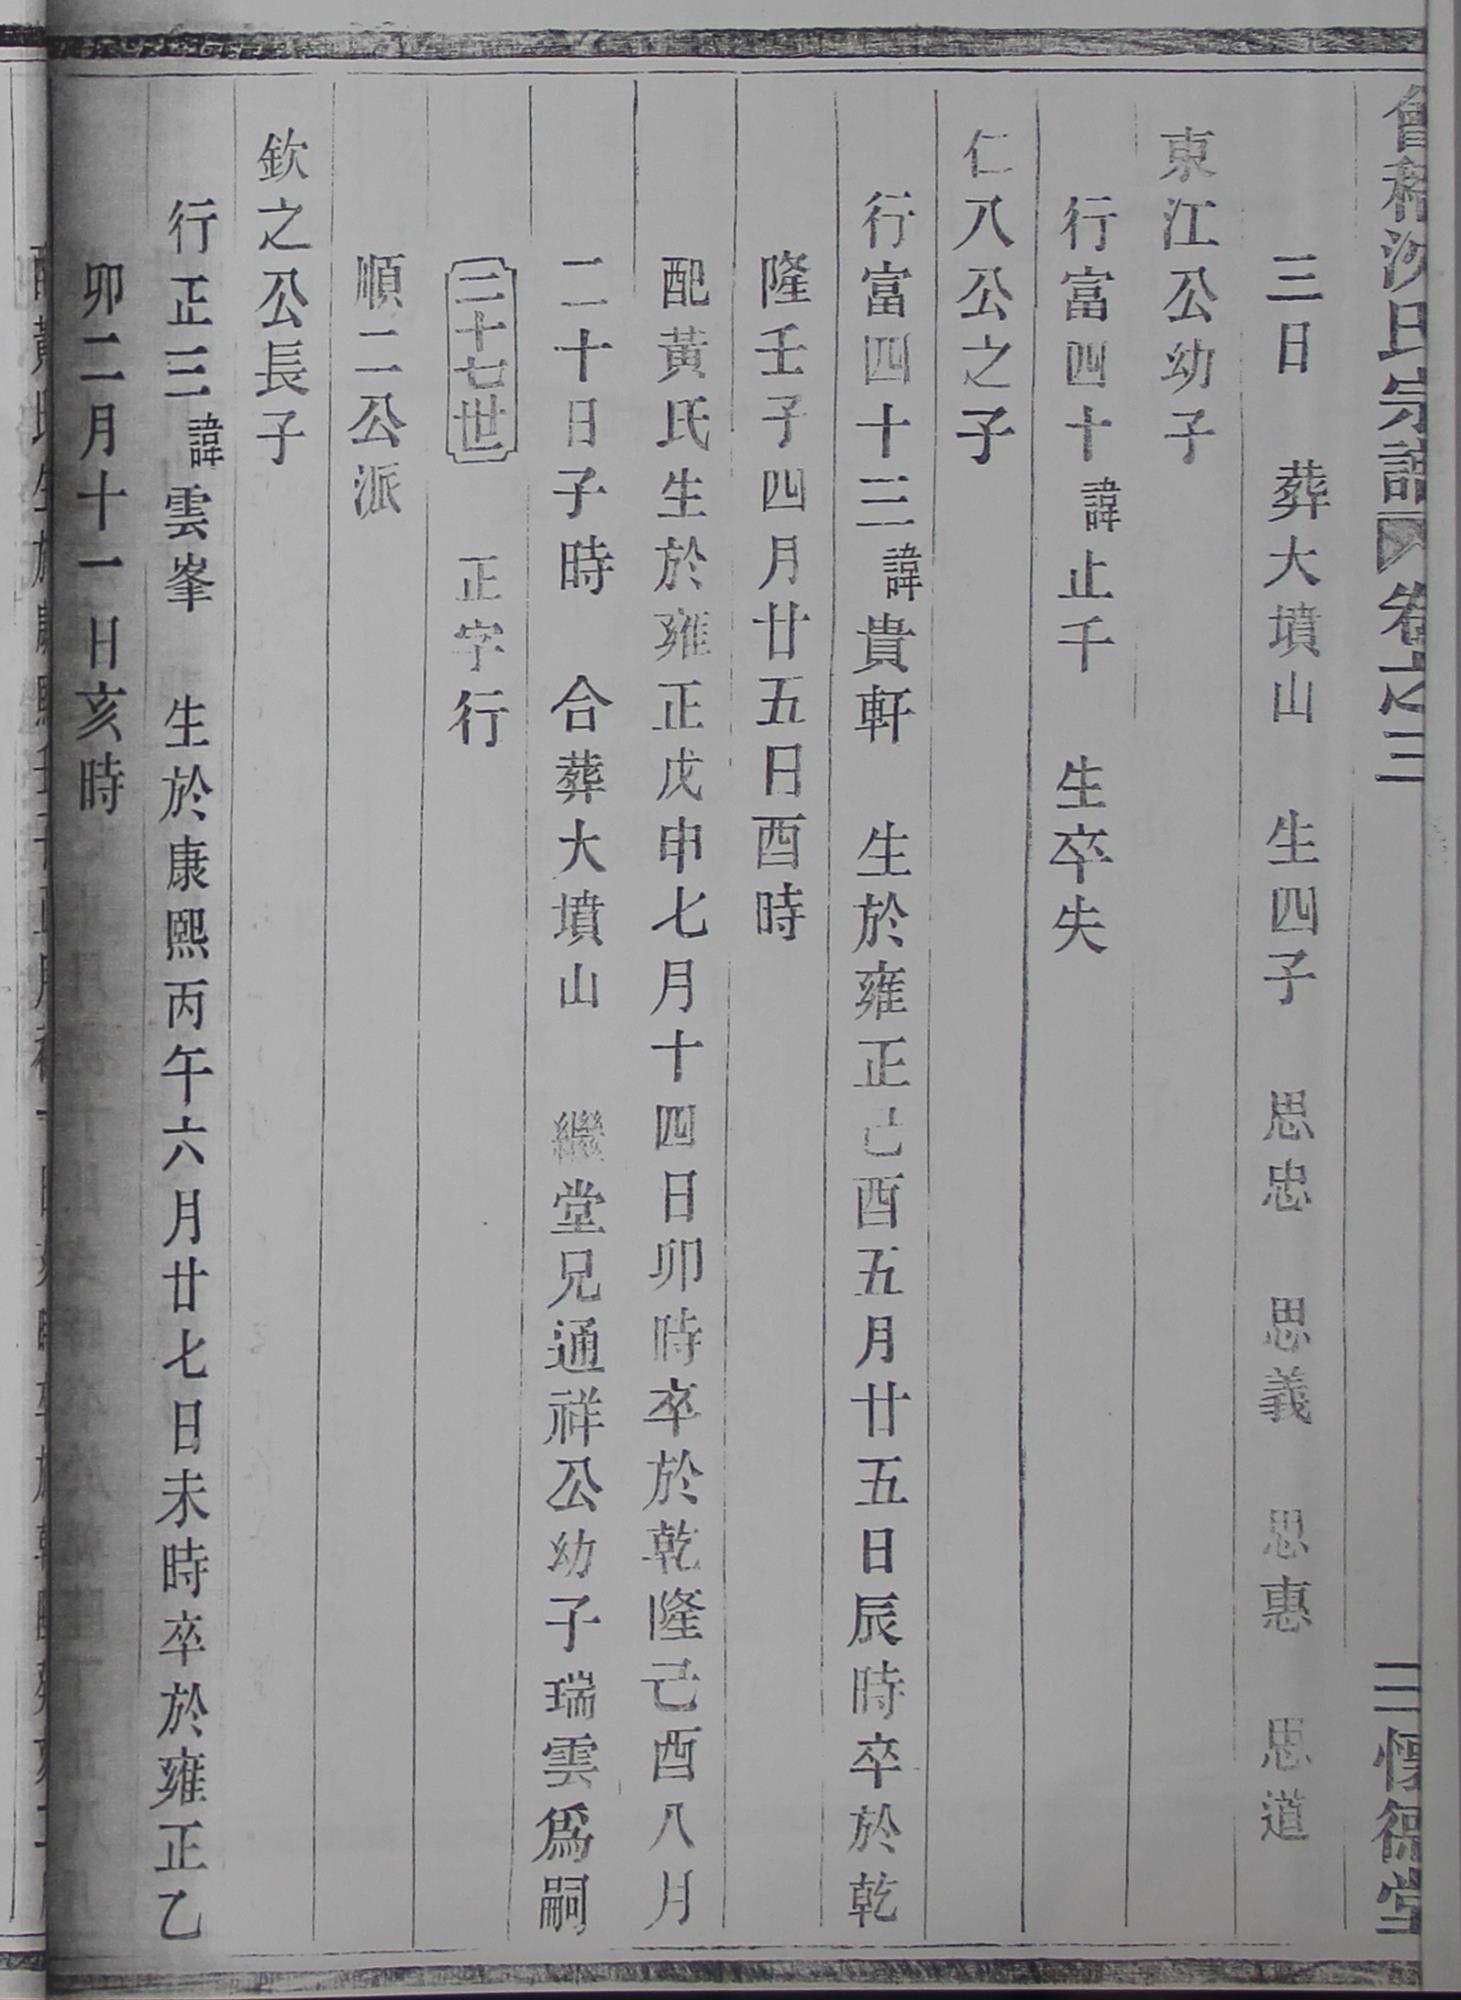 會稽沈氏宗譜 卷之三 三 懷德堂
三日 葬大墳山 生四子 思忠 思義 思惠 思道
東江公幼子
行富四十諱止千 生卒失
仁八公之子
行富四十三諱貴軒 生於雍正己酉五月廿五日辰時卒於乾
隆壬子四月廿五日酉時
配黃氏生於雍正戊申七月十四日卯時卒於乾隆己酉八月
二十日子時 合葬大墳山 繼堂兄通祥公幼子瑞雲爲嗣
二十七世 正字行
順二公派
欽之公長子
行正三諱雲峯 生於康熙丙午六月廿七日未時卒於雍正乙
卯二月十一日亥時